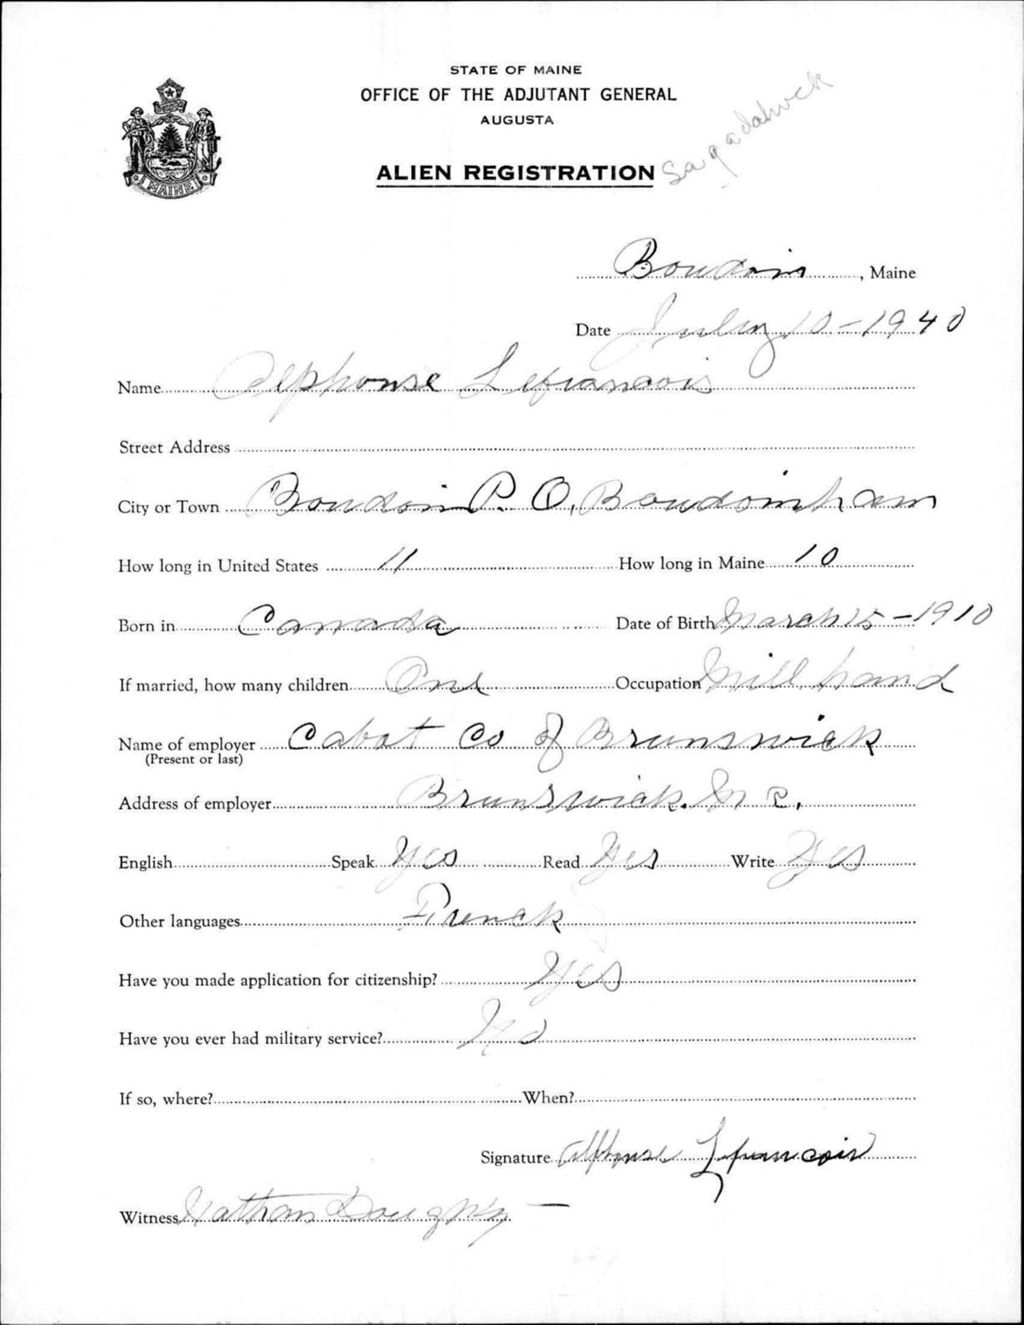 STATE OF MAINE
OFFICE OF THE ADJUTANT GENERAL
AUGUSTA
ALIEN REGISTRATION
Sagadahock
MAINE
Bowdoin, Maine
Date July 10-1940
Name Alphonse Lefrancois
Street Address
City or Town Bowdoin P. O. Bowdoinham
How long in United States 11 How long in Maine 10
Born in Canada Date of Birth March 15-1910
If married, how many children One Occupation Mill hand
Name of employer Cabot Co of Brunswick
(Present or last)
Address of employer Brunswick. Me.
English Speak Yes Read Yes Write Yes
Other languages French
Have you made application for citizenship? Yes
Have you ever had military service? No
If so, where? When?
Signature Alphonse Lefrancois
Witness Nathan